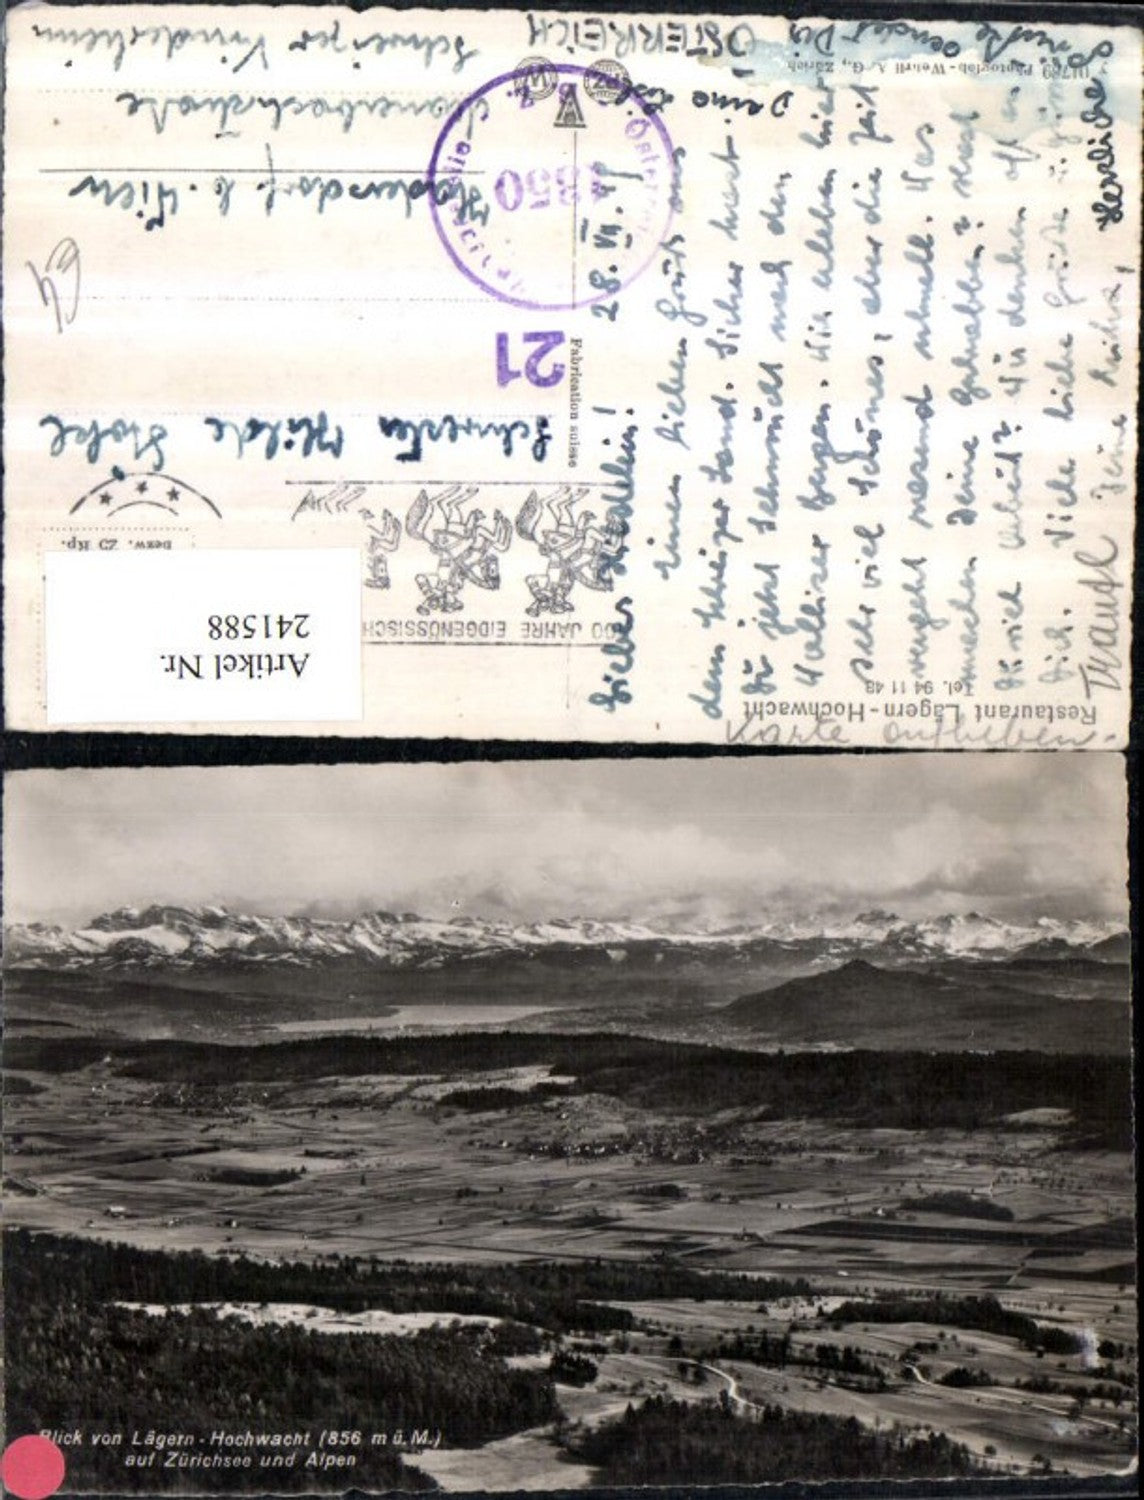 Restaurant Lägern-Hochwacht
Tel. 94 11 48
Karte aufheben.
28. VII. 49
Liebes
Einen lieben Gruß aus
dem Schweizer Land. Sicher hast
Du jetzt Sehnsucht nach den
Walliser Bergen. Wir erleben hier
sehr viel Schönes, aber die Zeit
vergeht rasend schnell. Was
machen Deine? Hast
Du viel Arbeit? Wir denken oft an
Dich. Viele liebe Grüße
Traudl
Herzliche
Grüße sendet Dir
Deine
01789 Photoglob-Wehrli A.G., Zürich
Fabrication suisse
100 JAHRE EIDGENÖSSISCH
bezw. 25 Rp.
Österr.
Zensur
1850
21
Schwester Hilde Stökl
Hadersdorf b. Wien
Mauerbachstraße
Schweizer Kinderheim
ÖSTERREICH
Artikel Nr.
241588
Blick von Lägern-Hochwacht (856 m ü. M.)
auf Zürichsee und Alpen